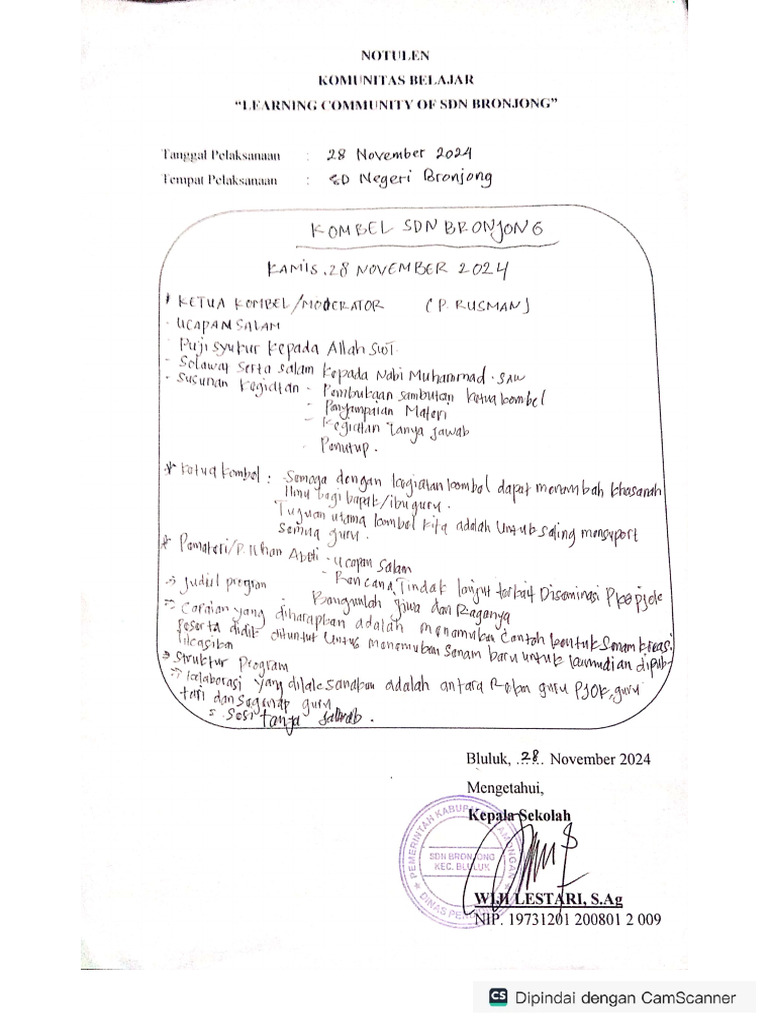 NOTULEN
KOMUNITAS BELAJAR
“LEARNING COMMUNITY OF SDN BRONJONG”
Tanggal Pelaksanaan : 28 November 2024
Tempat Pelaksanaan : SD Negeri Bronjong
KOMBEL SDN BRONJONG
KAMIS, 28 NOVEMBER 2024
* KETUA KOMBEL/MODERATOR (P. RUSMAN)
- UCAPAN SALAM
- Puji syukur kepada Allah SWT.
- Solawat serta salam kepada Nabi Muhammad. SAW
- Susunan kegiatan - Pembukaan sambutan ketua kombel
- Penyampaian Materi
- Kegiatan tanya jawab
- Penutup.
* Ketua kombel : Semoga dengan kegiatan kombel dapat menambah khasanah
Ilmu bagi bapak/ibu guru.
Tujuan utama kombel kita adalah untuk saling mensuport
semua guru.
* Pemateri/P. Ilhan Abdi - Ucapan Salam
- Rencana Tindak lanjut terkait Diseminasi PKB pjok
=> Judul program Bangunlah Jiwa dan Raganya
=> Capaian yang diharapkan adalah menemukan contoh bentuk senam kreasi
Peserta didik dituntut untuk menemukan senam baru untuk kemudian dipub-
likasikan
=> Struktur Program
=> Kolaborasi yang dilaksanakan adalah antara Rekan guru PJOK, guru
tari dan segenap guru
= Sesi tanya jawab.
Bluluk, .28. November 2024
Mengetahui,
Kepala Sekolah
PEMERINTAH KABUPATEN LAMONGAN
SDN BRONJONG
KEC. BLULUK
DINAS PENDIDIKAN
WIJI LESTARI, S.Ag
NIP. 19731201 200801 2 009
CS Dipindai dengan CamScanner